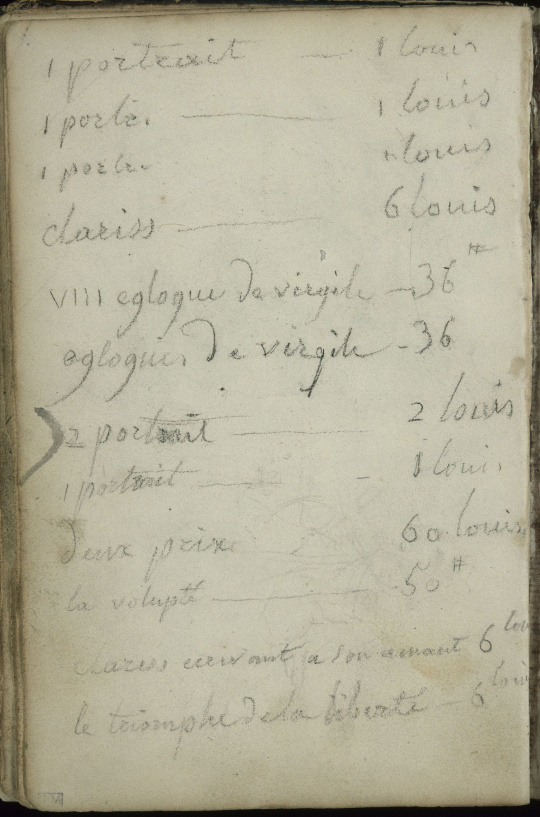 1 portrait — 1 louis
1 portr. — 1 louis
1 portr. 1 louis
clariss — 6 louis
VIII eglogue de virgile — 36 ⧺
eglogues de virgile — 36
2 portrait — 2 louis
1 portrait — 1 louis
deux prix 60 louis
la volupté — 50 ⧺
clariss ecrivant a son amant 6 lou
le triomphe de la liberté — 6 louis